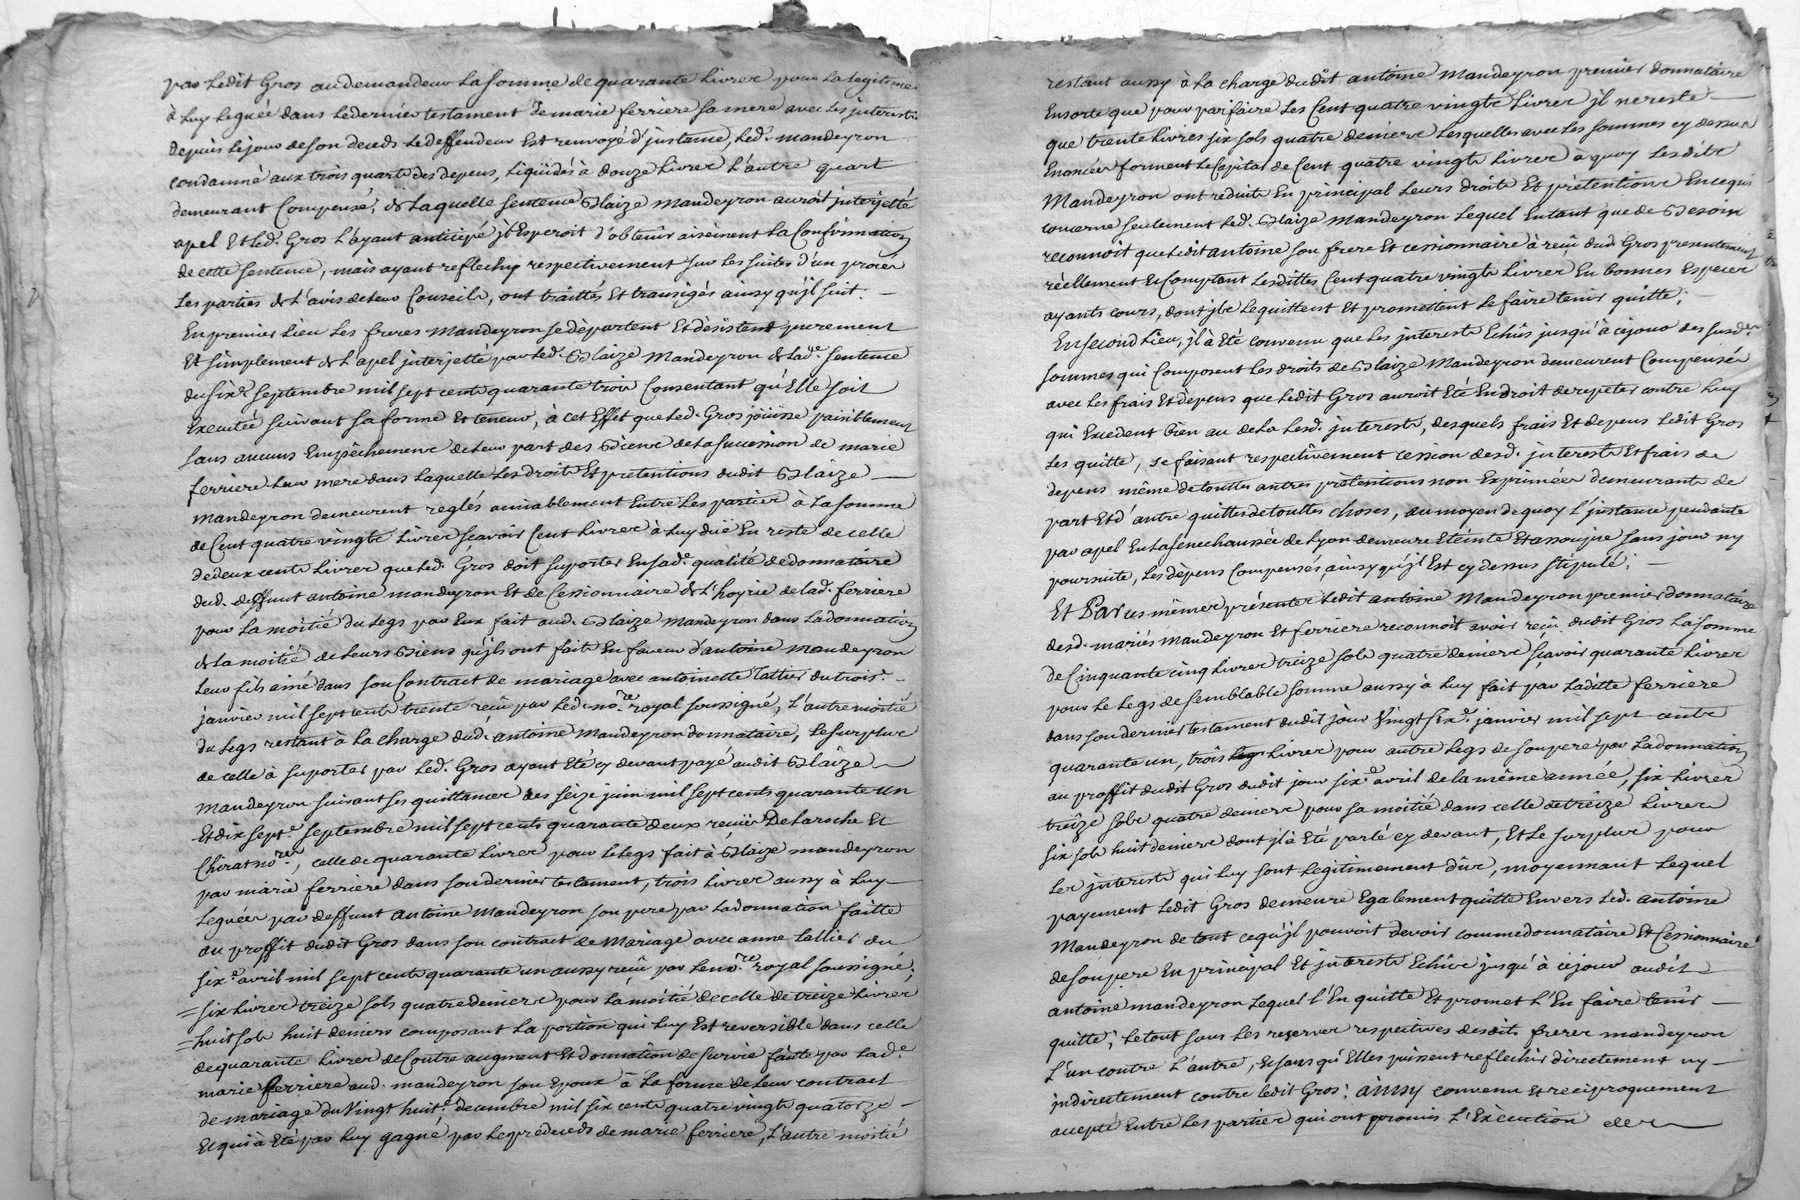 par Ledit Gros audemandeur La somme de quarante Livres pour La legitime
à Luy leguée dans Ledernier testament de marie ferriere sa mere avec Les jnterests
depuis Lejour deson deceds Ledeffendeur Est renvoyé d'jnstance, Led. mandeyron
condamné aux trois quarts des depens, Liquidés à douze Livres L'autre quart
demeurant Compensé, de Laquelle sentence Blaize Mandeyron auroit jnterjetté
apel Et Led. Gros L'ayant anticipé jl Esperoit d'obtenir aisément La Confirmation
de cette sentence, mais ayant reflechy respectivement sur Les suites d'un procés
Les parties de L'avis deLeur Conseils, ont traittés Et transigés ainsy qu'jl suit:
En premier Lieu Les freres Mandeyron se départent Et désistent purement
Et simplement de L'apel jnterjetté par Led. Blaize Mandeyron de Lade. sentence
du six.e septembre mil sept cents quarante trois Consentant qu'Elle soit
Executée suivant sa forme Et teneur, à cet Effet que Led. Gros jôüisse paisiblement
sans aucuns Empêchements de Leur part des Biens de La succession de marie
ferriere Leur mere dans Laquelle Les droits Et pretentions dudit Blaize
Mandeyron demeurent reglés amiablement Entre Les parties à La somme
de Cent quatre vingts Livres scavoir Cent Livres à Luy düe En reste de celle
de deux cents Livres que Led. Gros doit suporter En sade. qualité de donnataire
dud. deffunt antoine mandeyron Et de Cessionnaire de L'hoyrie de lad. ferriere
pour La moitié du Legs par Eux fait aud. Blaize Mandeyron dans La donnation
de La moitié de Leurs Biens qu'jls ont faite En faveur d'antoine mandeyron
Leur fils ainé dans son Contract de mariage avec antoinette Lallier du trois.e
janvier mil sept cents trente reçû par Led. no.re royal soussigné, L'autre moitié
du Legs restant à La charge dud. antoine Mandeyron donnataire, Le surplus
de celle à suporter par Led. Gros ayant Eté cy devant payé audit Blaize
Mandeyron suivant ses quittances des seize juin mil sept cents quarante un
Et dix sept.e septembre mil sept cents quarante deux recües De Laroche Et
Chirat no.res, celle de quarante Livres pour Le Legs fait à Blaize mandeyron
par marie ferriere dans son dernier testament, trois Livres aussy à Luy
Leguées par deffunt antoine Mandeyron son pere par La donnation faitte
au proffit dudit Gros dans son contract de Mariage avec anne Lallier du
six.e avril mil sept cents quarante un aussy reçû par Le no.re royal soussigné;
six Livres treize sols quatre deniers pour La moitié de celle de treize Livres
huit sols huit deniers composant La portion qui Luy Est reversible dans celle
de quarante Livres de Contre augment Et donnation de survie faitte par Lade.
marie ferriere aud. mandeyron son Epoux à La forme de Leur contract
de mariage du Vingt huit.e decembre mil six cents quatre vingts quatorze
Et qui à Eté par Luy gagné par Le predeceds de marie ferriere, L'autre moitié
restant aussy à La charge dudit antoine Mandeyron premier donnataire
Ensorte que pour parfaire Les Cent quatre vingts Livres jl ne reste
que trente Livres six sols quatre deniers Lesquelles avec Les sommes cy dessus
Enoncées forment Le Capital de Cent quatre vingts Livres à quoy Lesdits
Mandeyron ont reduits En principal Leurs droits Et prétentions En ce qui
concerne seulement Led. Blaize Mandeyron Lequel Entant que de Besoin
reconnoit que Ledit antoine son frere Et cessionnaire à reçû dud. Gros presentement
réellement Et Comptant Lesdittes Cent quatre vingts Livres En bonnes Especes
ayants cours, dont jls Le quittent Et promettent Le faire tenir quitte;
En second Lieu, jl à Eté convenu que Les jnterests Echûs jusqu'à ce jour des susd.es
sommes qui Composent Les droits de Blaize Mandeyron demeurent Compensés
avec Les frais Et dépens que Ledit Gros auroit Eté En droit de repeter contre Luy
qui Excedent bien au de La Lesd. jnterests, desquels frais Et depens Ledit Gros
Les quitte, se faisant respectivement cession desd. jnterests Et frais de
depens même de touttes autres prétentions non Exprimées demeurants de
part Et d'autre quittes de touttes choses, au moyen de quoy L'jnstance pendante
par apel En La senechaussée de Lyon demeure Eteinte Et assoupie sans jour ny
poursuite, Les dépens Compensés, ainsy qu'jl Est cy dessus stipulé;
Et Par ces mêmes présentes Ledit antoine Mandeyron premier donnataire
desd. mariés Mandeyron Et ferriere reconnoit avoir reçû dudit Gros La somme
de Cinquante cinq Livres treize sols quatre deniers scavoir quarante Livres
pour Le Legs de semblable somme aussy à Luy fait par Laditte ferriere
dans son dernier testament dudit jour Vingt six.e janvier mil sept cents
quarante un, trois Livres pour autre Legs de son pere par La donnation
au proffit dudit Gros dudit jour six.e avril de la même année, six Livres
treize sols quatre deniers pour sa moitié dans celle de treize Livres
six sols huit deniers dont jl à Eté parlé cy devant, Et Le surplus pour
Les jnterests qui Luy sont Legitimement dûs, moyennant Lequel
payement Ledit Gros demeure Egalement quitte Envers Led. antoine
Mandeyron de tout ce qu'jl pouvoit devoir comme donnataire Et Cessionnaire
de son pere En principal Et jnterests Echûs jusqu'à ce jour audit
antoine mandeyron Lequel l'En quitte Et promet L'En faire tenir
quitte; Le tout sous Les reserves respectives desdits freres mandeyron
L'un contre L'autre, Et sans qu'Elles puissent reflechir directement ny
jndirectement contre Ledit Gros; ainsy convenu Et reciproquement
accepté Entre Les parties qui ont promis L'Exécution